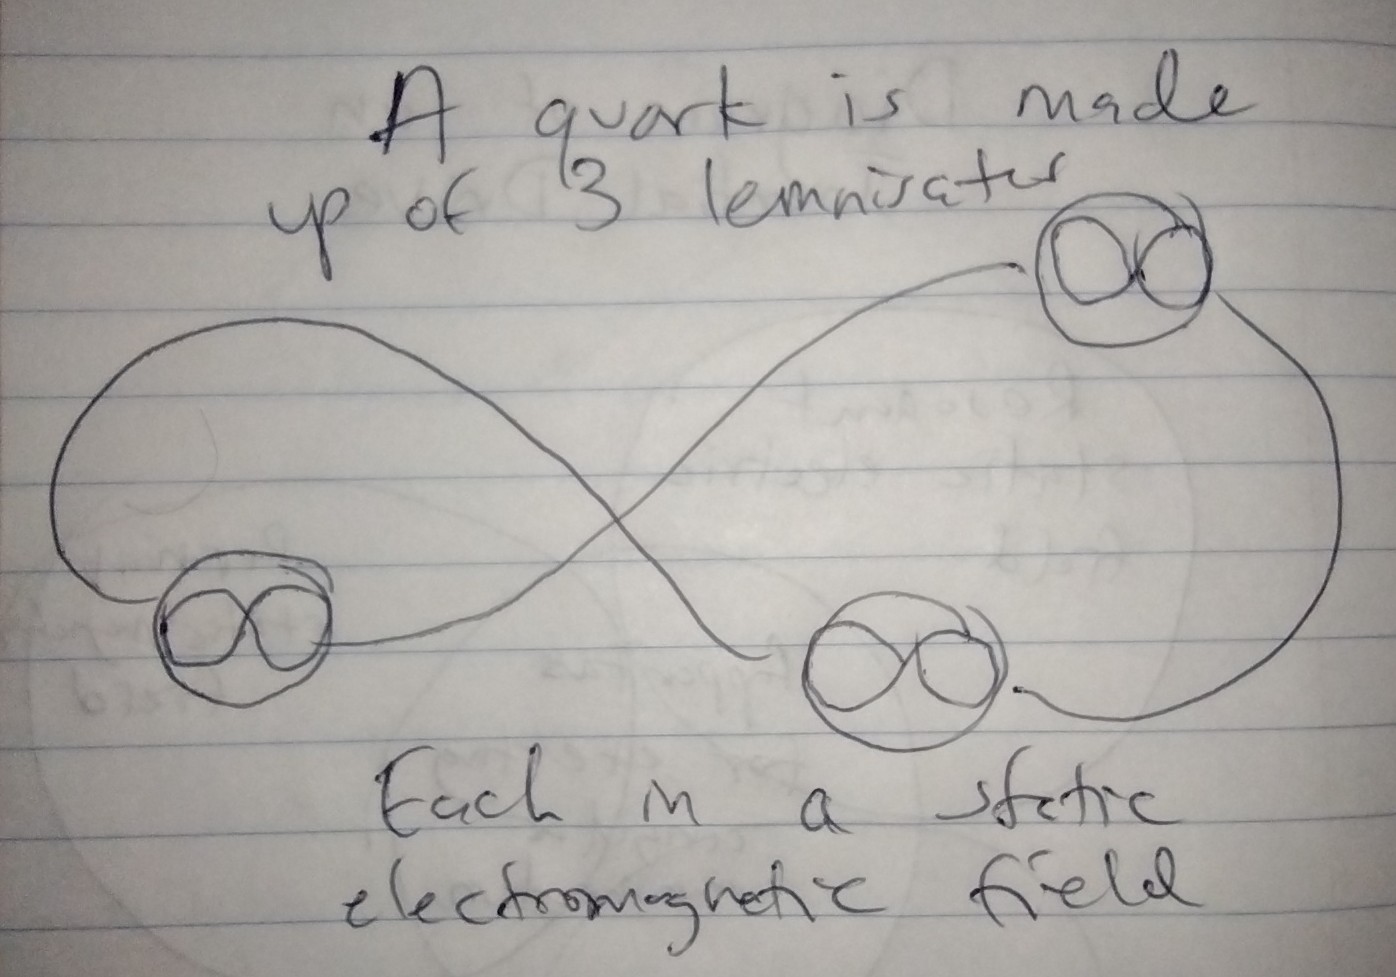 A quark is made
up of 3 lemniscates
Each in a static
electromagnetic field